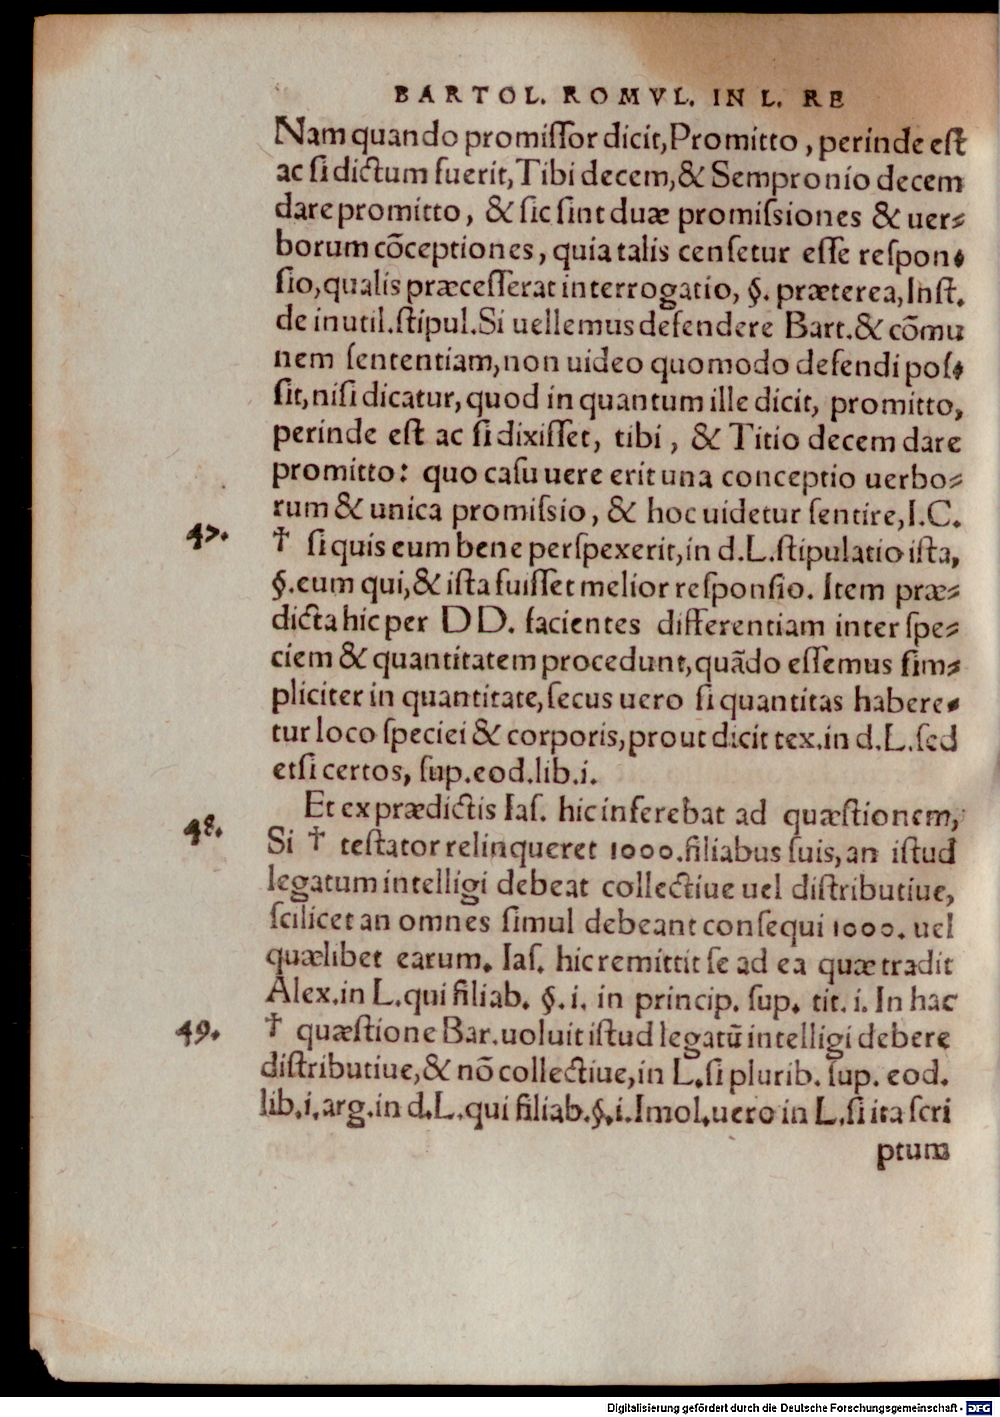 BARTOL. ROMVL. IN L. RE
Nam quando promiſſor dicit, Promitto, perinde eſt
ac ſi dictum fuerit, Tibi decem, & Sempronio decem
dare promitto, & ſic ſint duæ promiſsiones & uer-
borum cōceptiones, quia talis cenſetur eſſe reſpon-
ſio, qualis præceſſerat interrogatio, §. præterea, Inſt.
de inutil. ſtipul. Si uellemus defendere Bart. & cōmu
nem ſententiam, non uideo quomodo defendi poſ-
ſit, niſi dicatur, quod in quantum ille dicit, promitto,
perinde eſt ac ſi dixiſſet, tibi, & Titio decem dare
promitto: quo caſu uere erit una conceptio uerbo-
rum & unica promiſsio, & hoc uidetur ſentire, I.C.
47. † ſi quis eum bene perſpexerit, in d.L. ſtipulatio iſta,
§. eum qui, & iſta fuiſſet melior reſponſio. Item præ-
dicta hic per DD. facientes differentiam inter ſpe-
ciem & quantitatem procedunt, quādo eſſemus ſim-
pliciter in quantitate, ſecus uero ſi quantitas habere-
tur loco ſpeciei & corporis, prout dicit tex. in d.L. ſed
etſi certos, ſup. eod. lib. i.
Et ex prædictis Iaſ. hic inferebat ad quæſtionem,
48. Si † teſtator relinqueret 1000. filiabus ſuis, an iſtud
legatum intelligi debeat collectiue uel diſtributiue,
ſcilicet an omnes ſimul debeant conſequi 1000. uel
quælibet earum. Iaſ. hic remittit ſe ad ea quæ tradit
Alex. in L. qui filiab. §. i. in princip. ſup. tit. i. In hac
49. † quæſtione Bar. uoluit iſtud legatū intelligi debere
diſtributiue, & nō collectiue, in L. ſi plurib. ſup. eod.
lib. i. arg. in d.L. qui filiab. §. i. Imol. uero in L. ſi ita ſcri
ptum
Digitalisierung gefördert durch die Deutsche Forschungsgemeinschaft - DFG